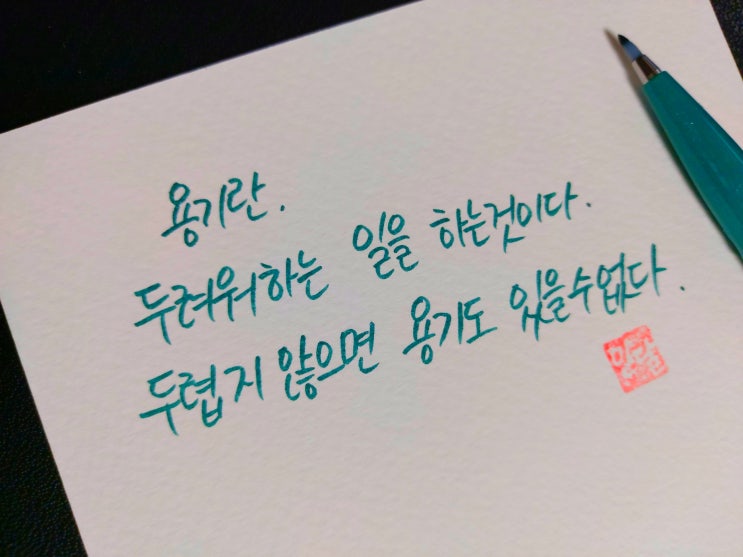 용기란.
두려워하는 일을 하는것이다.
두렵지 않으면 용기도 있을수없다.